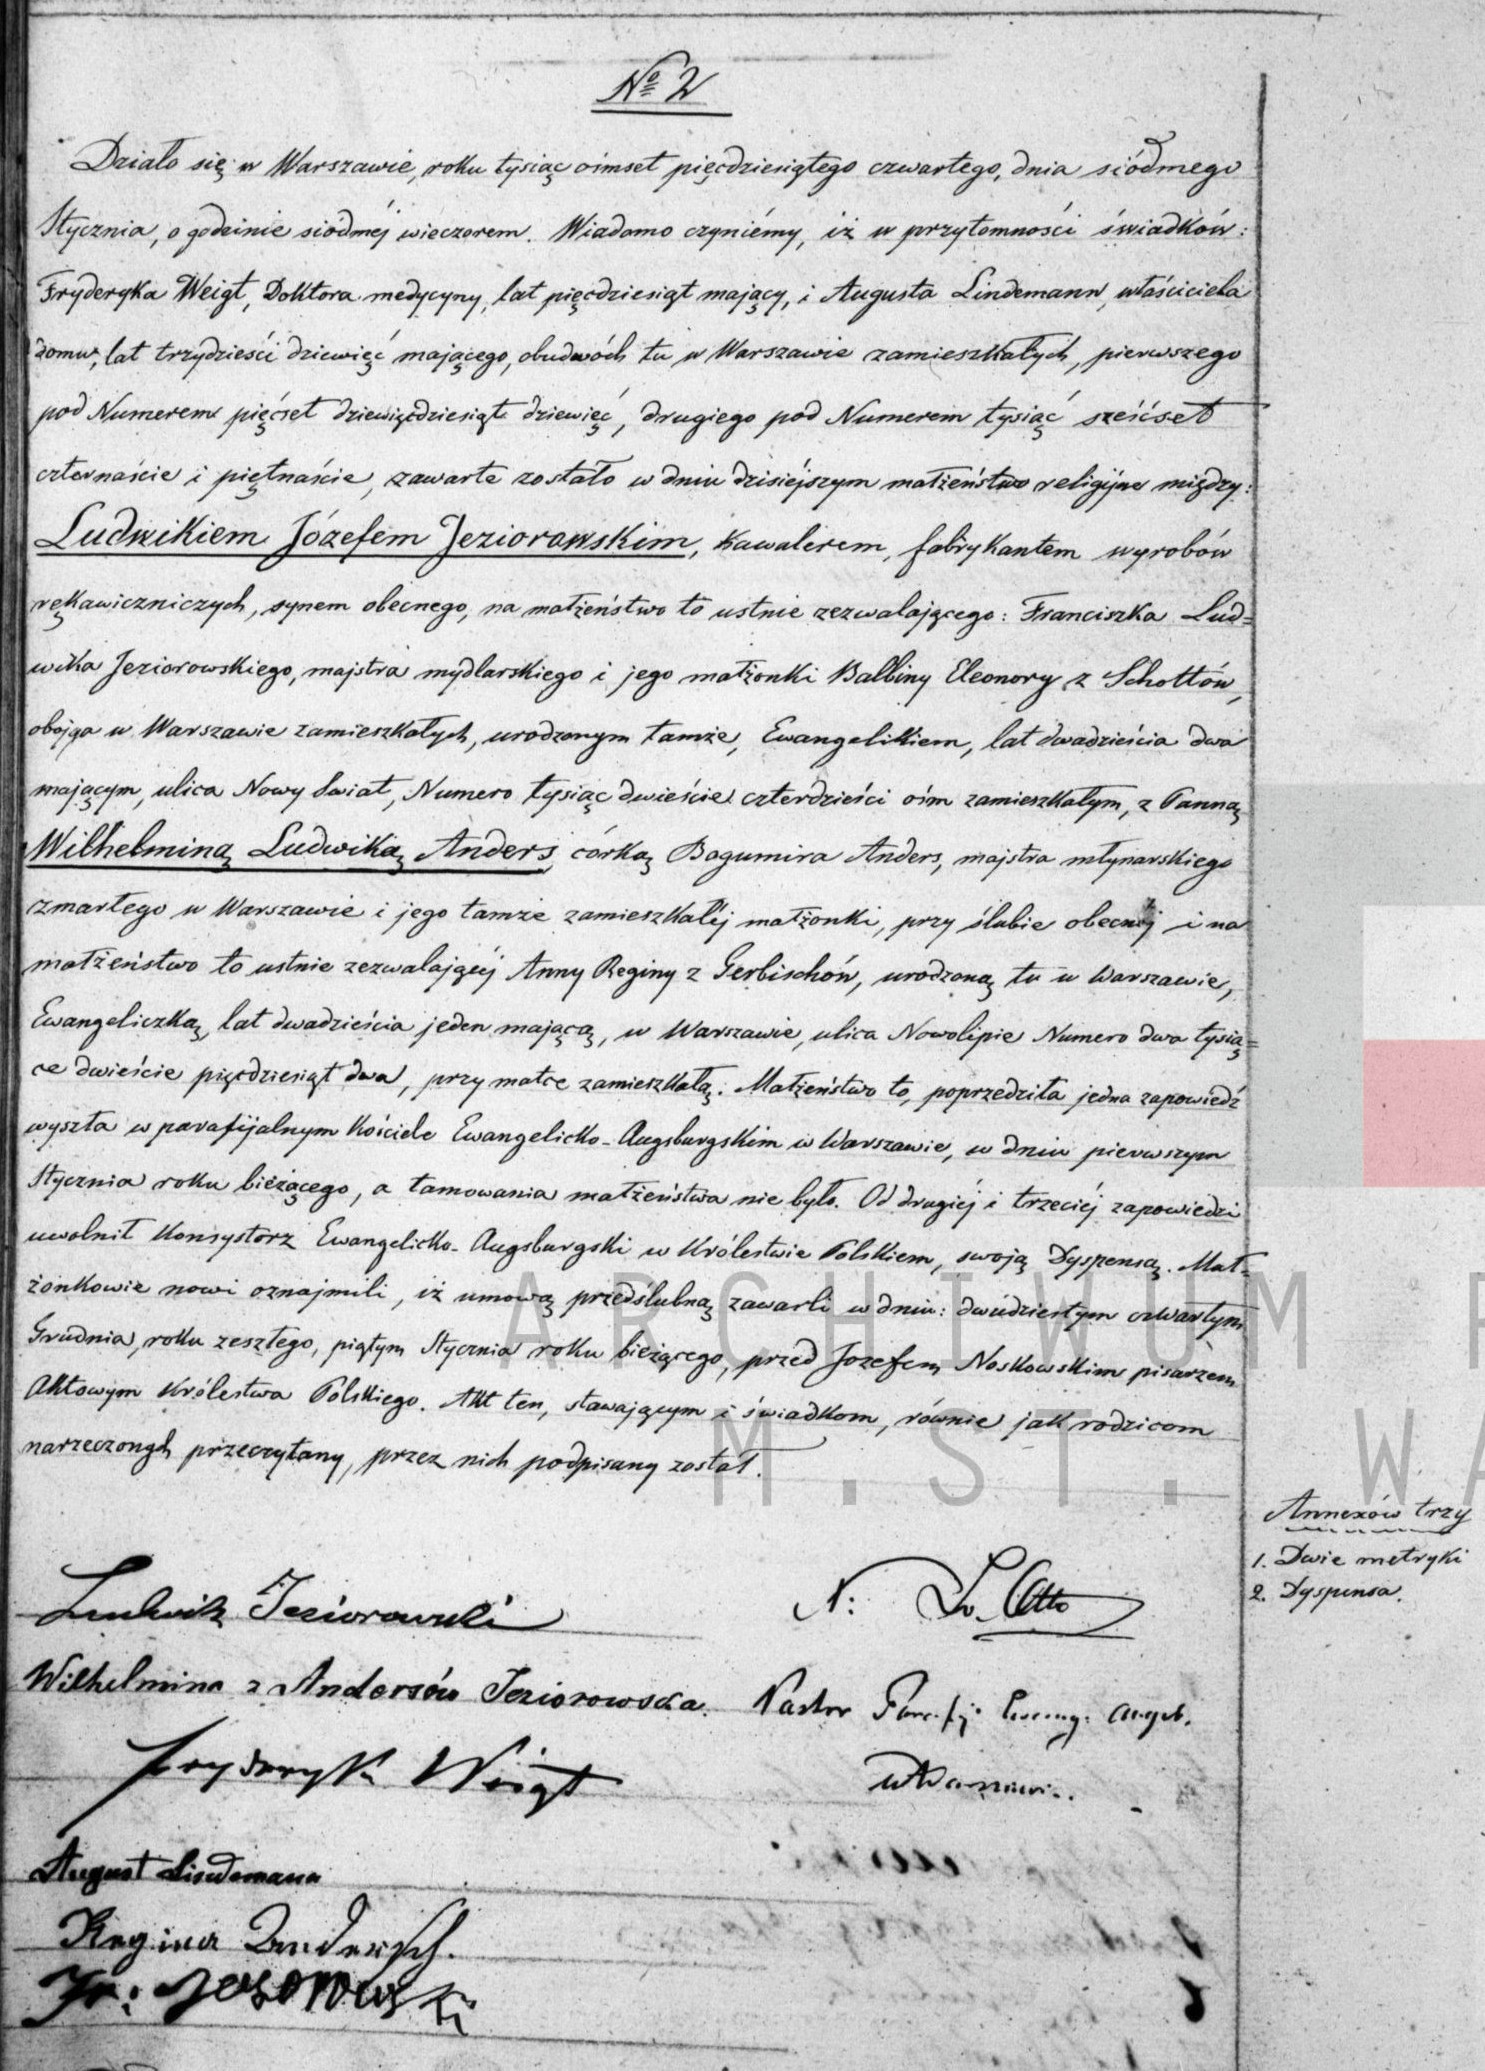 No 2
Działo się w Warszawie, roku tysiąc ośmset pięćdziesiątego czwartego, dnia siódmego
Stycznia, o godzinie siódméj wieczorem. Wiadomo czyniémy, iż w przytomności świadków:
Fryderyka Weigt, Doktora medycyny, lat pięćdziesiąt mający, i Augusta Lindemann, właściciela
domu, lat trzydzieści dziewięć mającego, obudwóch tu w Warszawie zamieszkałych, pierwszego
pod Numerem pięćset dziewięćdziesiąt dziewięć, drugiego pod Numerem tysiąć sześćset
czternaście i piętnaście, zawarte zostało w dniu dzisiéjszym małżeństwo religijne między:
Ludwikiem Józefem Jeziorowskim, Kawalerem, fabrykantem wyrobów
rękawiczniczych, synem obecnego, na małżeństwo to ustnie zezwalającego: Franciszka Lud=
wika Jeziorowskiego, majstra mydlarskiego i jego małżonki Balbiny Eleonory z Schottów,
obojga w Warszawie zamieszkałych, urodzonym tamże, Ewangelikiem, lat dwadzieścia dwa
mającym, ulica Nowy Świat, Numero tysiąc dwieście czterdzieści ośm zamieszkałym, z Panną
Wilhelminą Ludwiką Anders, córką Bogumira Anders, majstra młynarskiego
zmarłego w Warszawie i jego tamże zamieszkałéj małżonki, przy ślubie obecnéj i na
małżeństwo to ustnie zezwalającéj Anny Reginy z Gerbischów, urodzoną tu w Warszawie,
Ewangeliczką, lat dwadzieścia jeden mającą, w Warszawie, ulica Nowolipie Numero dwa tysią=
ce dwieście pięćdziesiąt dwa, przy matce zamieszkałą. Małżeństwo to, poprzedziła jedna zapowiedź
wyszła w parafijalnym Kościele Ewangelicko-Augsburgskim w Warszawie, w dniu pierwszym
Stycznia roku bieżącego, a tamowania małżeństwa nie było. Od drugiéj i trzeciéj zapowiedzi
uwolnił Konsystorz Ewangelicko-Augsburgski w Królestwie Polskiem, swoją Dyspensą. Mał=
żonkowie nowi oznajmili, iż umową przedślubną zawarli w dniu: dwudziestym czwartym
Grudnia, roku zeszłego, piątym Stycznia roku bieżącego, przed Jozefem Noskowskim pisarzem
Aktowym Królestwa Polskiego. Akt ten, stawającym i świadkom, równie jak rodzicom
narzeczonych przeczytany, przez nich podpisany został.
ARCHIWUM P
M.ST. WA
Annexów trzy
1. Dwie metryki
2. Dyspensa.
Ludwik Jeziorowski
Wilhelmina z Andersów Jeziorowska.
Fryderyk Weigt
August Lindemann
Regina
Fr: Jesorowski
N: L. Otto
Pastor Parafij. Ewang. Augsb.
w Warszawie.